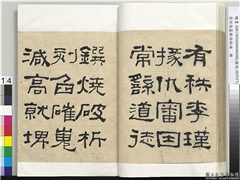 有秩李瑾
掾仇審因
常繇道徒
鐉燒破析
刻臽磪嵬
減高就埤
14